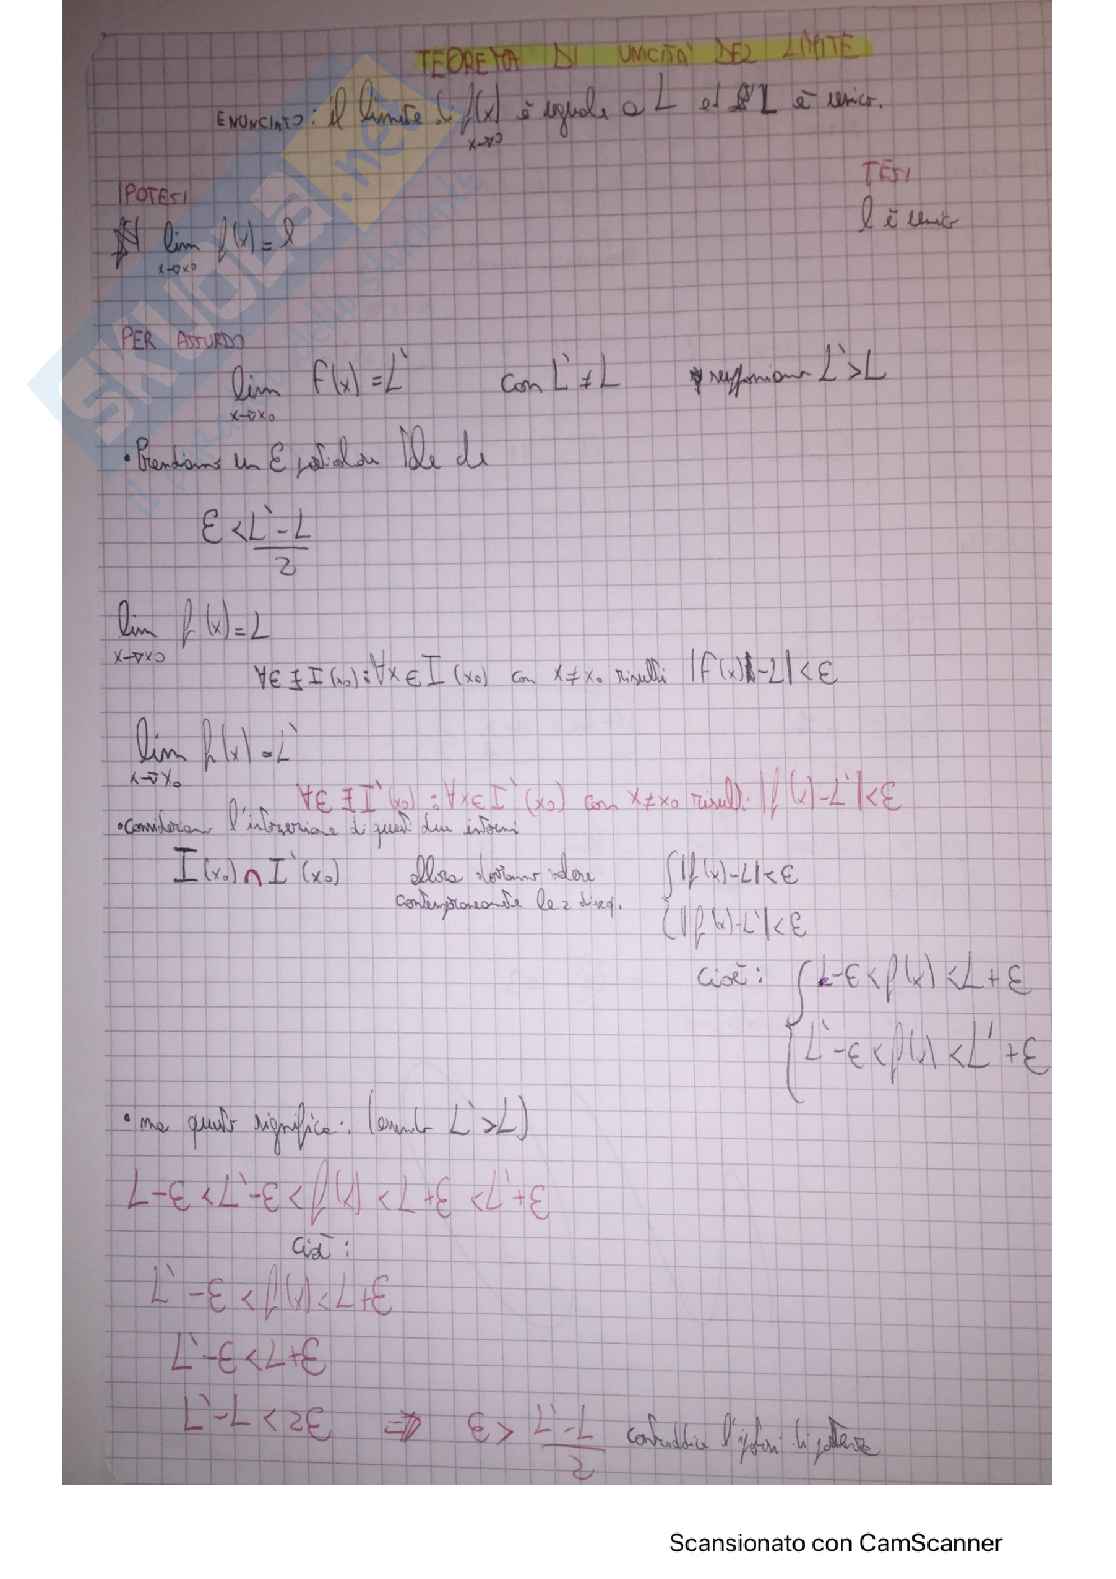 TEOREMA DI UNICITA' DEL LIMITE
ENUNCIATO: il limite di f(x) è uguale a L ed L è unico.
x→x0
IPOTESI
TESI
lim f(x) = l
x→x0
l è unico
PER ASSURDO
lim f(x) = L'  con L' ≠ L  supponiamo L' > L
x→x0
• Prendiamo un ε positivo tale che
ε < L' - L
2
lim f(x) = L
x→x0
∀ε ∃ I(x0) : ∀x ∈ I(x0) con x ≠ x0 risulti |f(x) - L| < ε
lim f(x) = L'
x→x0
∀ε ∃ I'(x0) : ∀x ∈ I'(x0) con x ≠ x0 risulti |f(x) - L'| < ε
• Consideriamo l'intersezione di questi due intorni
I(x0) ∩ I'(x0)  allora dovranno valere  { |f(x) - L| < ε
contemporaneamente le 2 diseq.  { |f(x) - L'| < ε
cioè: { L - ε < f(x) < L + ε
{ L' - ε < f(x) < L' + ε
• ma questo significa: (essendo L' > L)
L - ε < L' - ε < f(x) < L + ε < L' + ε
cioè:
L' - ε < f(x) < L + ε
L' - ε < L + ε
L' - L < 2ε ⇒ ε > L' - L contraddice l'ipotesi di partenza
2
SKUOLA.net
Scansionato con CamScanner